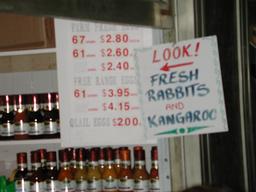 FARM FRESH EGGS
67 $2.80
61 $2.60
$2.40
FREE RANGE EGGS
61 $3.95
$4.15
QUAIL EGGS $2.00
LOOK!
FRESH
RABBITS
AND
KANGAROO